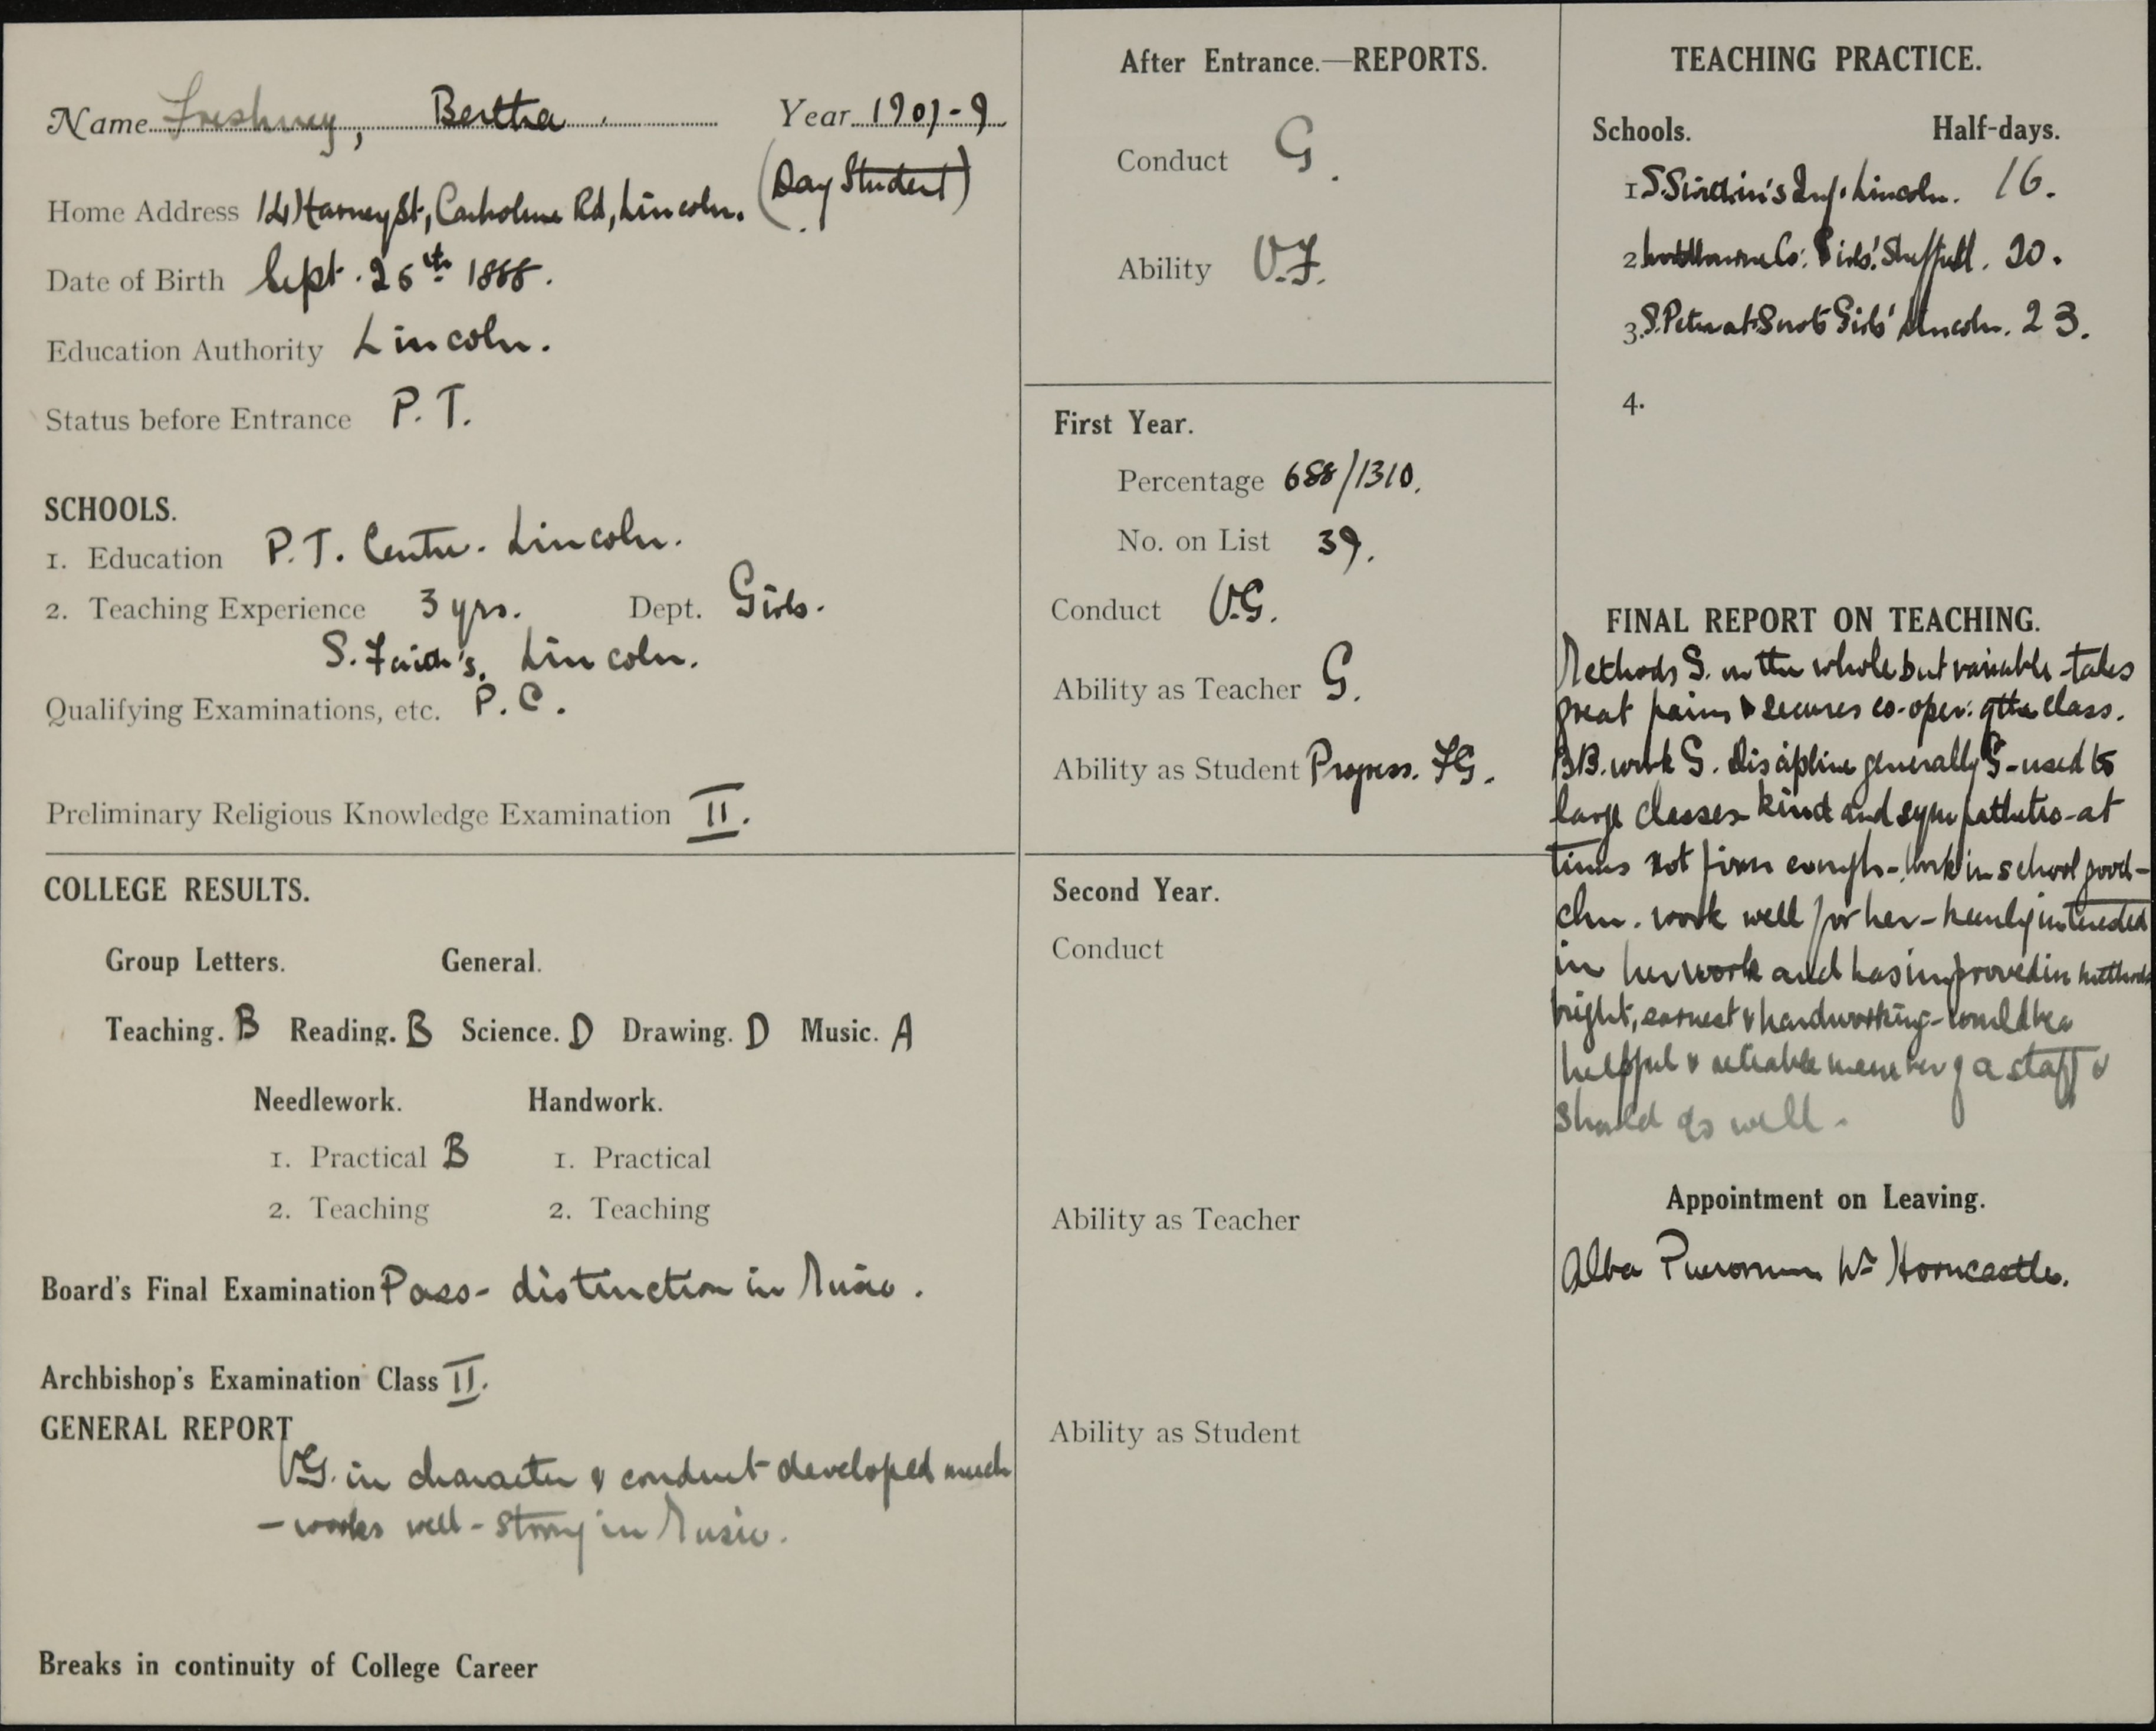 Name Freshney, Bertha. Year 1907-9
(Day Student)
Home Address 14 Harvey St, Carholme Rd, Lincoln.
Date of Birth Sept. 26th 1888.
Education Authority Lincoln.
Status before Entrance P.T.
SCHOOLS.
1. Education P.T. Centre. Lincoln.
2. Teaching Experience 3 yrs. Dept. Girls.
S. Faith's, Lincoln.
Qualifying Examinations, etc. P.C.
Preliminary Religious Knowledge Examination II.
COLLEGE RESULTS.
Group Letters. General.
Teaching. B Reading. B Science. D Drawing. D Music. A
Needlework. Handwork.
1. Practical B 1. Practical
2. Teaching 2. Teaching
Board's Final Examination Pass - distinction in Music.
Archbishop's Examination Class II.
GENERAL REPORT
VG. in character & conduct - developed much
- works well - strong in Music.
Breaks in continuity of College Career
After Entrance.—REPORTS.
Conduct G.
Ability V.F.
First Year.
Percentage 688/1310.
No. on List 39.
Conduct V.G.
Ability as Teacher G.
Ability as Student Progress. FG.
Second Year.
Conduct
Ability as Teacher
Ability as Student
TEACHING PRACTICE.
Schools. Half-days.
1 S. Swithin's Inf. Lincoln. 16.
2 Co: Girls'. Sheffield. 20.
3. S. Peter at Gowts Girls' Lincoln. 23.
4.
FINAL REPORT ON TEACHING.
Methods G. on the whole but variable - takes
great pains & secures co-oper: of the class.
BB. work G. Discipline generally G - used to
large classes - kind and sympathetic - at
times not firm enough - work in school good -
chn. work well for her - keenly interested
in her work and has improved in methods
bright, earnest & hardworking - would be a
helpful & reliable member of a staff &
should do well.
Appointment on Leaving.
Alba Puerorum Nr Horncastle.